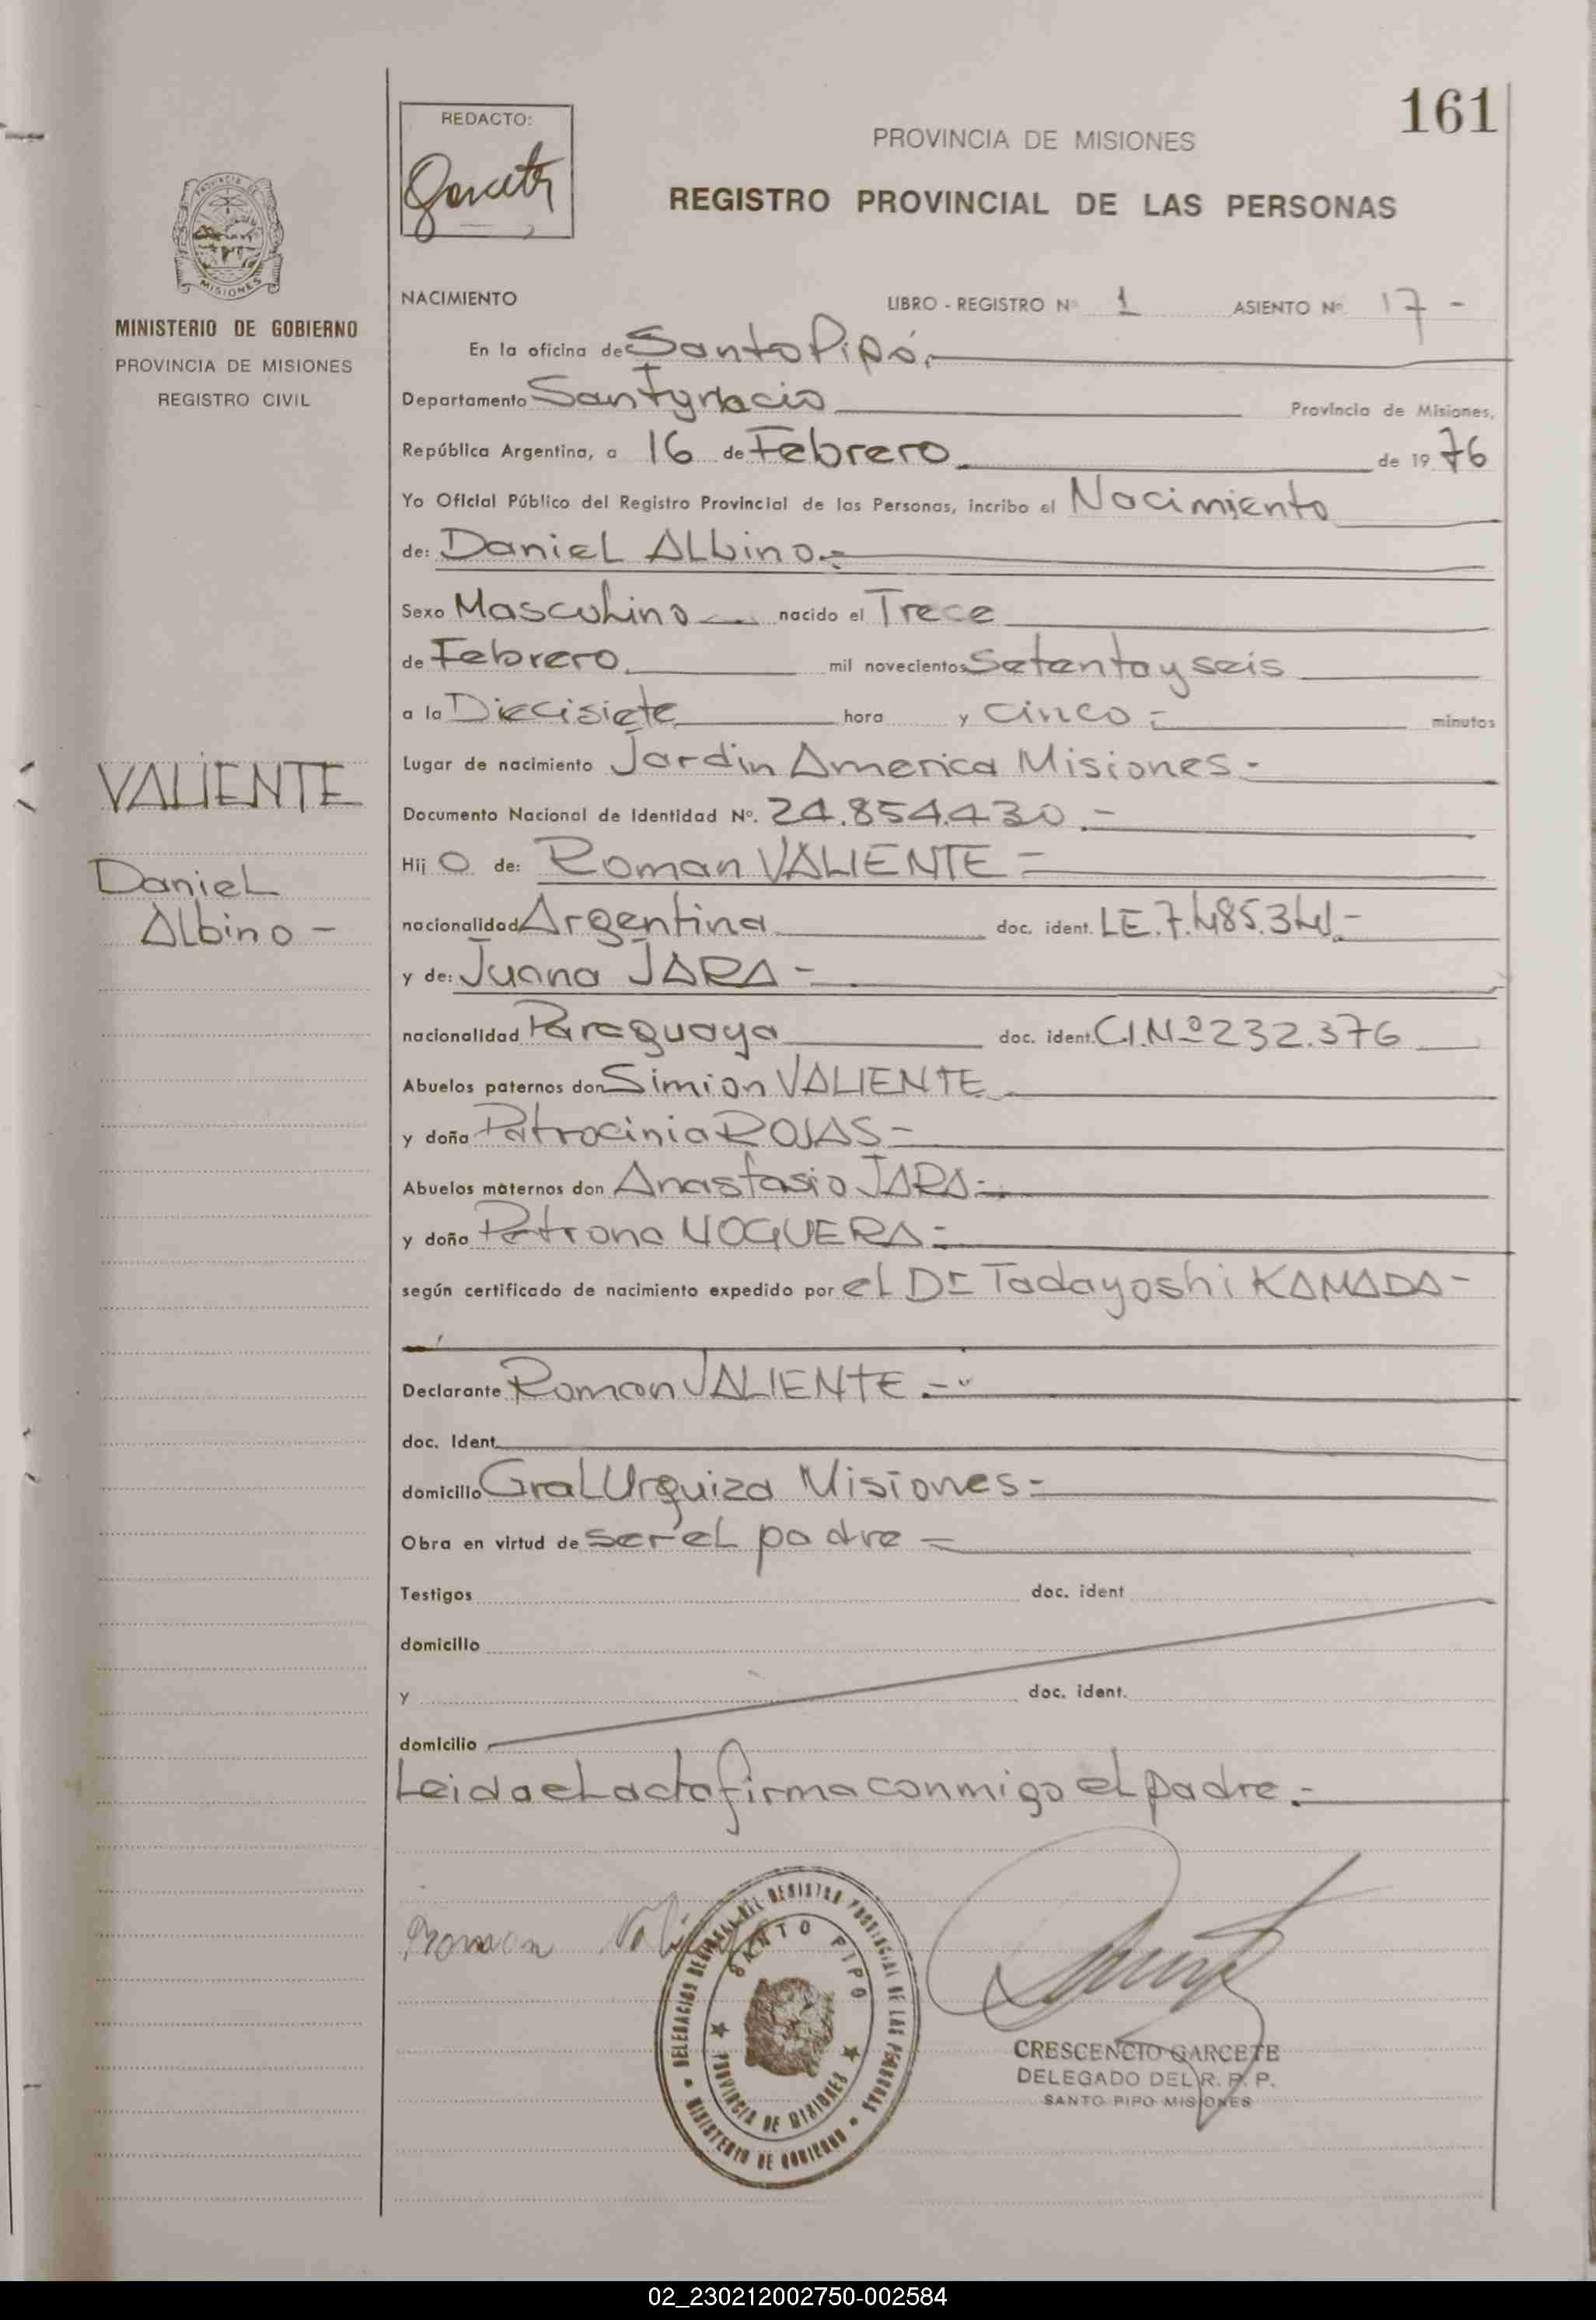 161
REDACTO:
PROVINCIA DE MISIONES
REGISTRO PROVINCIAL DE LAS PERSONAS
MISIONES
MINISTERIO DE GOBIERNO
PROVINCIA DE MISIONES
REGISTRO CIVIL
VALIENTE
Daniel
Albino -
NACIMIENTO LIBRO - REGISTRO Nº 1 ASIENTO Nº 17 -
En la oficina de Santo Pipó.
Departamento San Ignacio Provincia de Misiones,
República Argentina, a 16 de Febrero de 1976
Yo Oficial Público del Registro Provincial de las Personas, incribo el Nacimiento
de: Daniel Albino.-
Sexo Masculino nacido el Trece
de Febrero mil novecientos Setenta y seis
a la Diecisiete hora y cinco - minutos
Lugar de nacimiento Jardin America Misiones -
Documento Nacional de Identidad Nº. 24.854.430.-
Hij o de: Roman VALIENTE -
nacionalidad Argentina doc. ident. LE.7.485.341.-
y de: Juana JARA -
nacionalidad Paraguaya doc. ident. C.I.Nº 232.376
Abuelos paternos don Simion VALIENTE
y doña Patrocinia ROJAS -
Abuelos maternos don Anastasio JARA -
y doña Petrona NOGUERA -
según certificado de nacimiento expedido por el Dr Tadayoshi KAMADA -
Declarante Roman VALIENTE.-
doc. Ident.
domicilio Gral Urquiza Misiones -
Obra en virtud de ser el padre -
Testigos doc. ident
domicilio
y doc. ident.
domicilio
Leida el acta firma conmigo el padre.-
Roman
DELEGACION GENERAL DEL REGISTRO PROVINCIAL DE LAS PERSONAS
SANTO PIPO
PROVINCIA DE MISIONES
MINISTERIO DE GOBIERNO
CRESCENCIO GARCETE
DELEGADO DEL R. P. P.
SANTO PIPO MISIONES
02_230212002750-002584